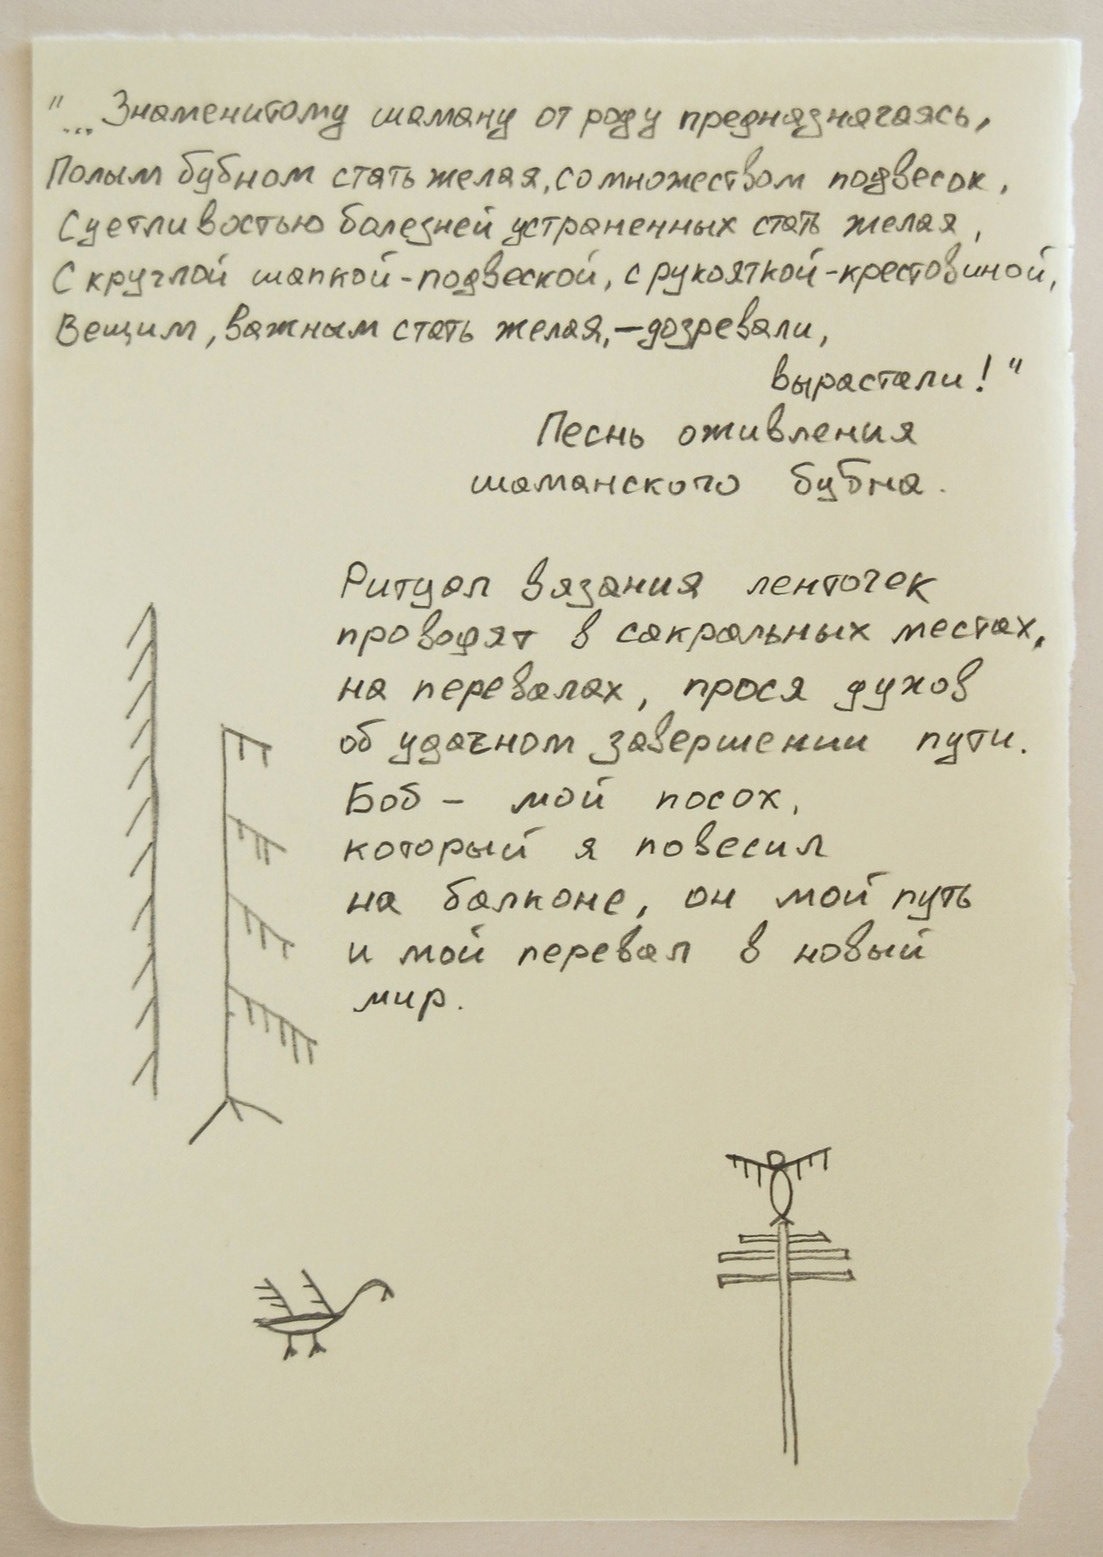 "...Знаменитому шаману от роду предназначаясь,
Полым бубном стать желая, со множеством подвесок,
Суетливостью болезней устраненных стать желая,
С круглой шапкой-подвеской, с рукояткой-крестовиной,
Вещим, важным стать желая,—дозревали,
вырастали!"
Песнь оживления
шаманского бубна.
Ритуал вязания ленточек
проводят в сакральных местах,
на перевалах, прося духов
об удачном завершении пути.
Боб – мой посох,
который я повесил
на балконе, он мой путь
и мой перевал в новый
мир.